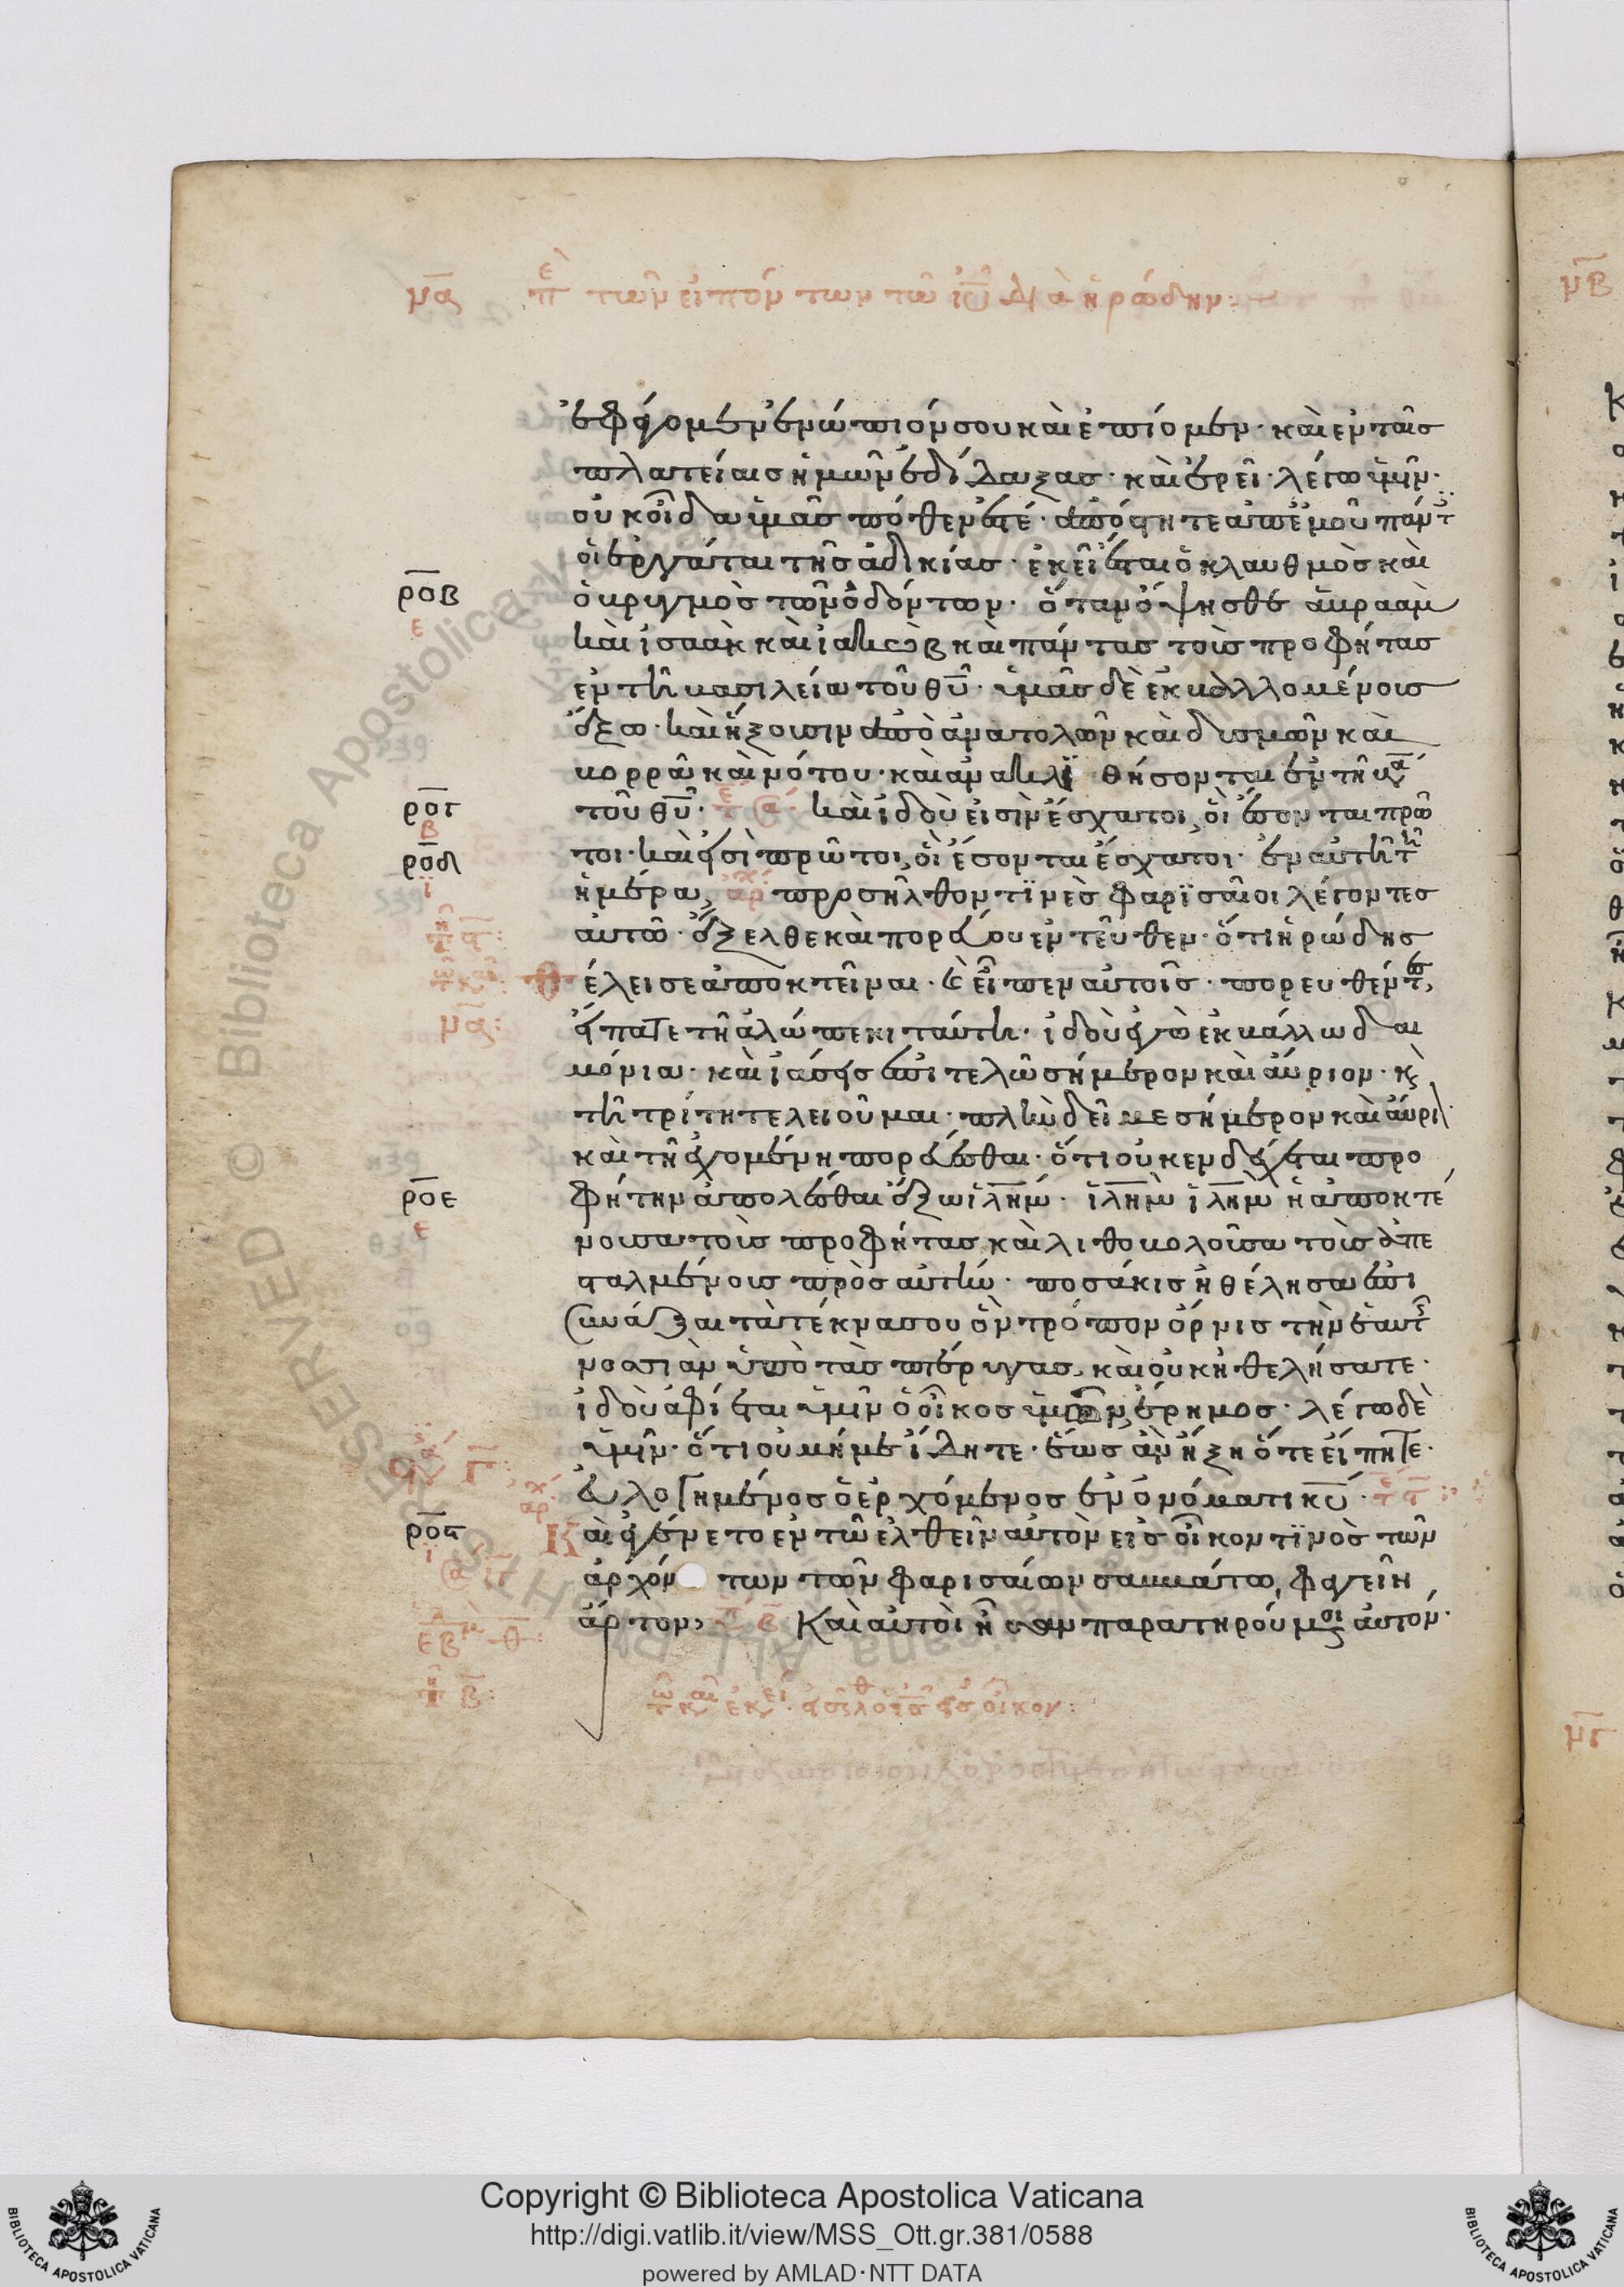 μα περὶ τῶν εἰπόντων τῶ ἰῦ διὰ ἡρώδην:
ἐφάγομεν ἐνώπιόν σου καὶ ἐπίομεν · καὶ ἐν ταῖσ
πλατείαισ ἡμῶν ἐδίδαξασ · καὶ ἐρεῖ · λέγω ὑμῖν ·
οὐκ οἶδα ὑμᾶσ πόθεν ἐστέ · ἀπόστητε ἀπ' ἐμοῦ πάντ
οἱ ἐργάται τῆσ ἀδικίασ · ἐκεῖ ἔσται ὁ κλαυθμὸσ καὶ
ροβ ὁ βρυγμὸσ τῶν ὀδόντων · ὅταν ὄψησθε ἀβραὰμ
ε
καὶ ἰσαὰκ καὶ ἰακὼβ καὶ πάντασ τοὺσ προφήτασ
ἐν τῆ βασιλεία τοῦ θῦ · ὑμᾶσ δὲ ἐκβαλλομένουσ
ἔξω · καὶ ἥξουσιν ἀπὸ ἀνατολῶν καὶ δυσμῶν καὶ
βορρᾶ καὶ νότου · καὶ ἀνακλι θήσονται ἐν τῆ βα
ρογ τοῦ θῦ · καὶ ἰδοὺ εἰσὶν ἔσχατοι, οἳ ἔσονται πρῶ
β
ροδ τοι · καὶ εἰσὶ πρῶτοι, οἳ ἔσονται ἔσχατοι · ἐν αὐτῆ τῆ
ϊ
ἡμέρα, ἀρχ προσῆλθον τϊνὲσ φαρϊσαῖοι λέγοντεσ
αὐτῶ · ἔξελθε καὶ πορεύου ἐντεῦθεν · ὅτι ἡρώδησ
θέλει σε ἀποκτεῖναι · καὶ εἶπεν αὐτοῖσ · πορευθέντεσ,
μα: εἴπατε τῆ ἀλώπεκι ταύτη · ἰδοὺ ἐγὼ ἐκβάλλω δαι
μόνια · καὶ ἰάσεισ ἐπιτελῶ σήμερον καὶ αὔριον · καὶ
τῆ τρίτη τελειοῦμαι · πλὴν δεῖ με σήμερον καὶ αὔρι
καὶ τῆ ἐχομένη πορεύεσθαι · ὅτι οὐκ ενδέχεται προ
ροε φήτην ἀπολέσθαι ἔξω ἰλημ · ἰλημ ἰλημ ἡ ἀποκτέ
ε
νουσα τοὺσ προφήτασ καὶ λιθοβολοῦσα τοὺσ ἀπε
σταλμένουσ πρὸσ αὐτήν · ποσάκισ ἠθέλησα ἐπι
συνάξαι τὰ τέκνα σου ὃν τρόπον ὄρνισ τὴν ἑαυτ
νοσσιὰν ὑπὸ τὰσ πτέρυγασ, καὶ οὐκ ἠθελήσατε ·
ἰδοὺ ἀφίεται ὑμῖν ὁ οἶκοσ ὑμῶν ἔρημοσ · λέγω δὲ
ὑμῖν · ὅτι οὐ μή με ἴδητε · ἕωσ ἂν ἥξη ὅτε εἴπητε ·
εὐλογημένοσ ὁ ἐρχόμενοσ ἐν ὀνόματι κῦ ·
ροϛ Καὶ ἐγένετο ἐν τῶ ἐλθεῖν αὐτὸν εἰσ οἶκον τϊνὸσ τῶν
ϊ
ἀρχόν των τῶν φαρισαίων σαββάτω, φαγεῖν
ἄρτον, Καὶ αὐτοὶ ἦσαν παρατηρούμενοι αὐτόν ·
Copyright © Biblioteca Apostolica Vaticana
http://digi.vatlib.it/view/MSS_Ott.gr.381/0588
powered by AMLAD·NTT DATA